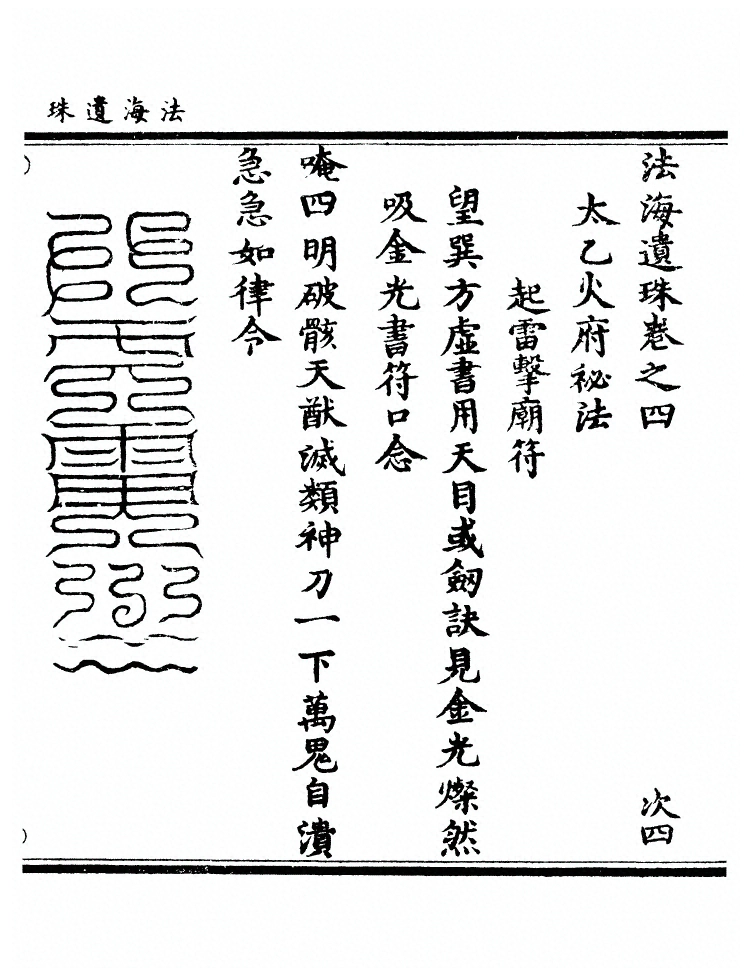 法海遺珠
法海遺珠卷之四
次四
太乙火府祕法
起雷擊廟符
望巽方虛書用天目或劒訣見金光燦然
吸金光書符口念
唵四明破骸天猷滅類神刀一下萬鬼自潰
急急如律令